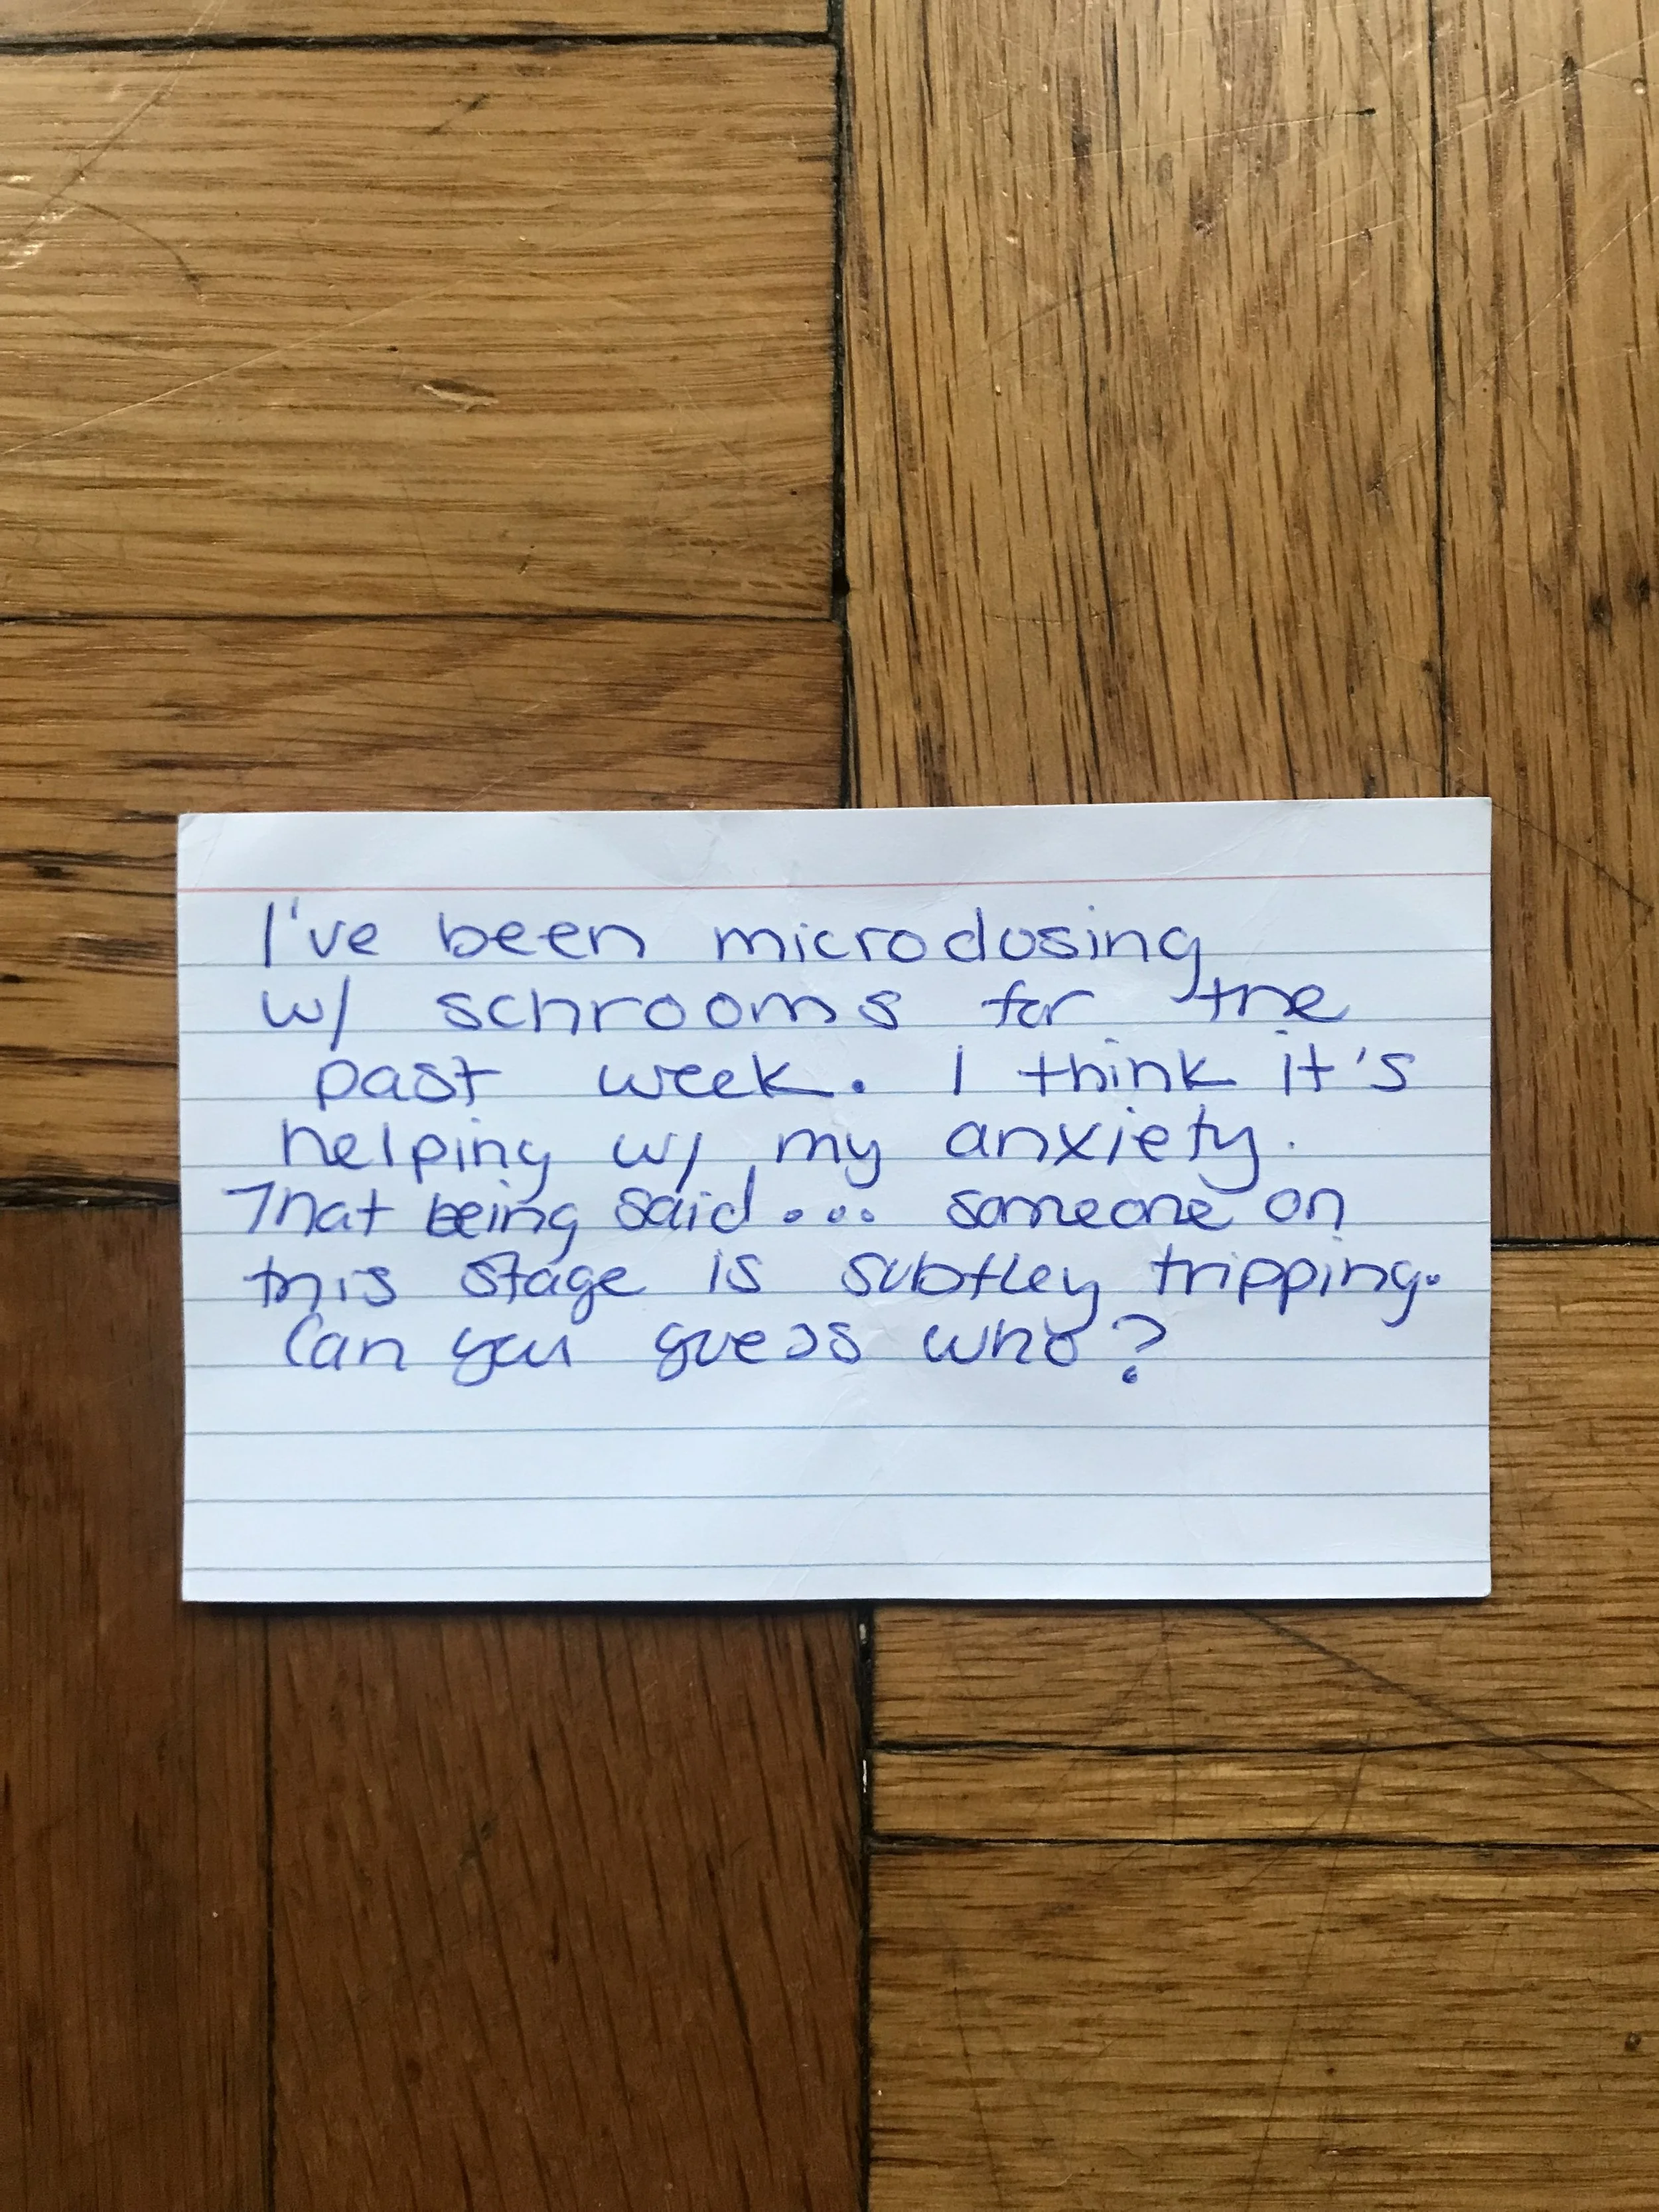 I've been microdosing
w/ schrooms for the
past week. I think it's
helping w/ my anxiety.
That being said... someone on
this stage is subtley tripping.
Can you guess who?